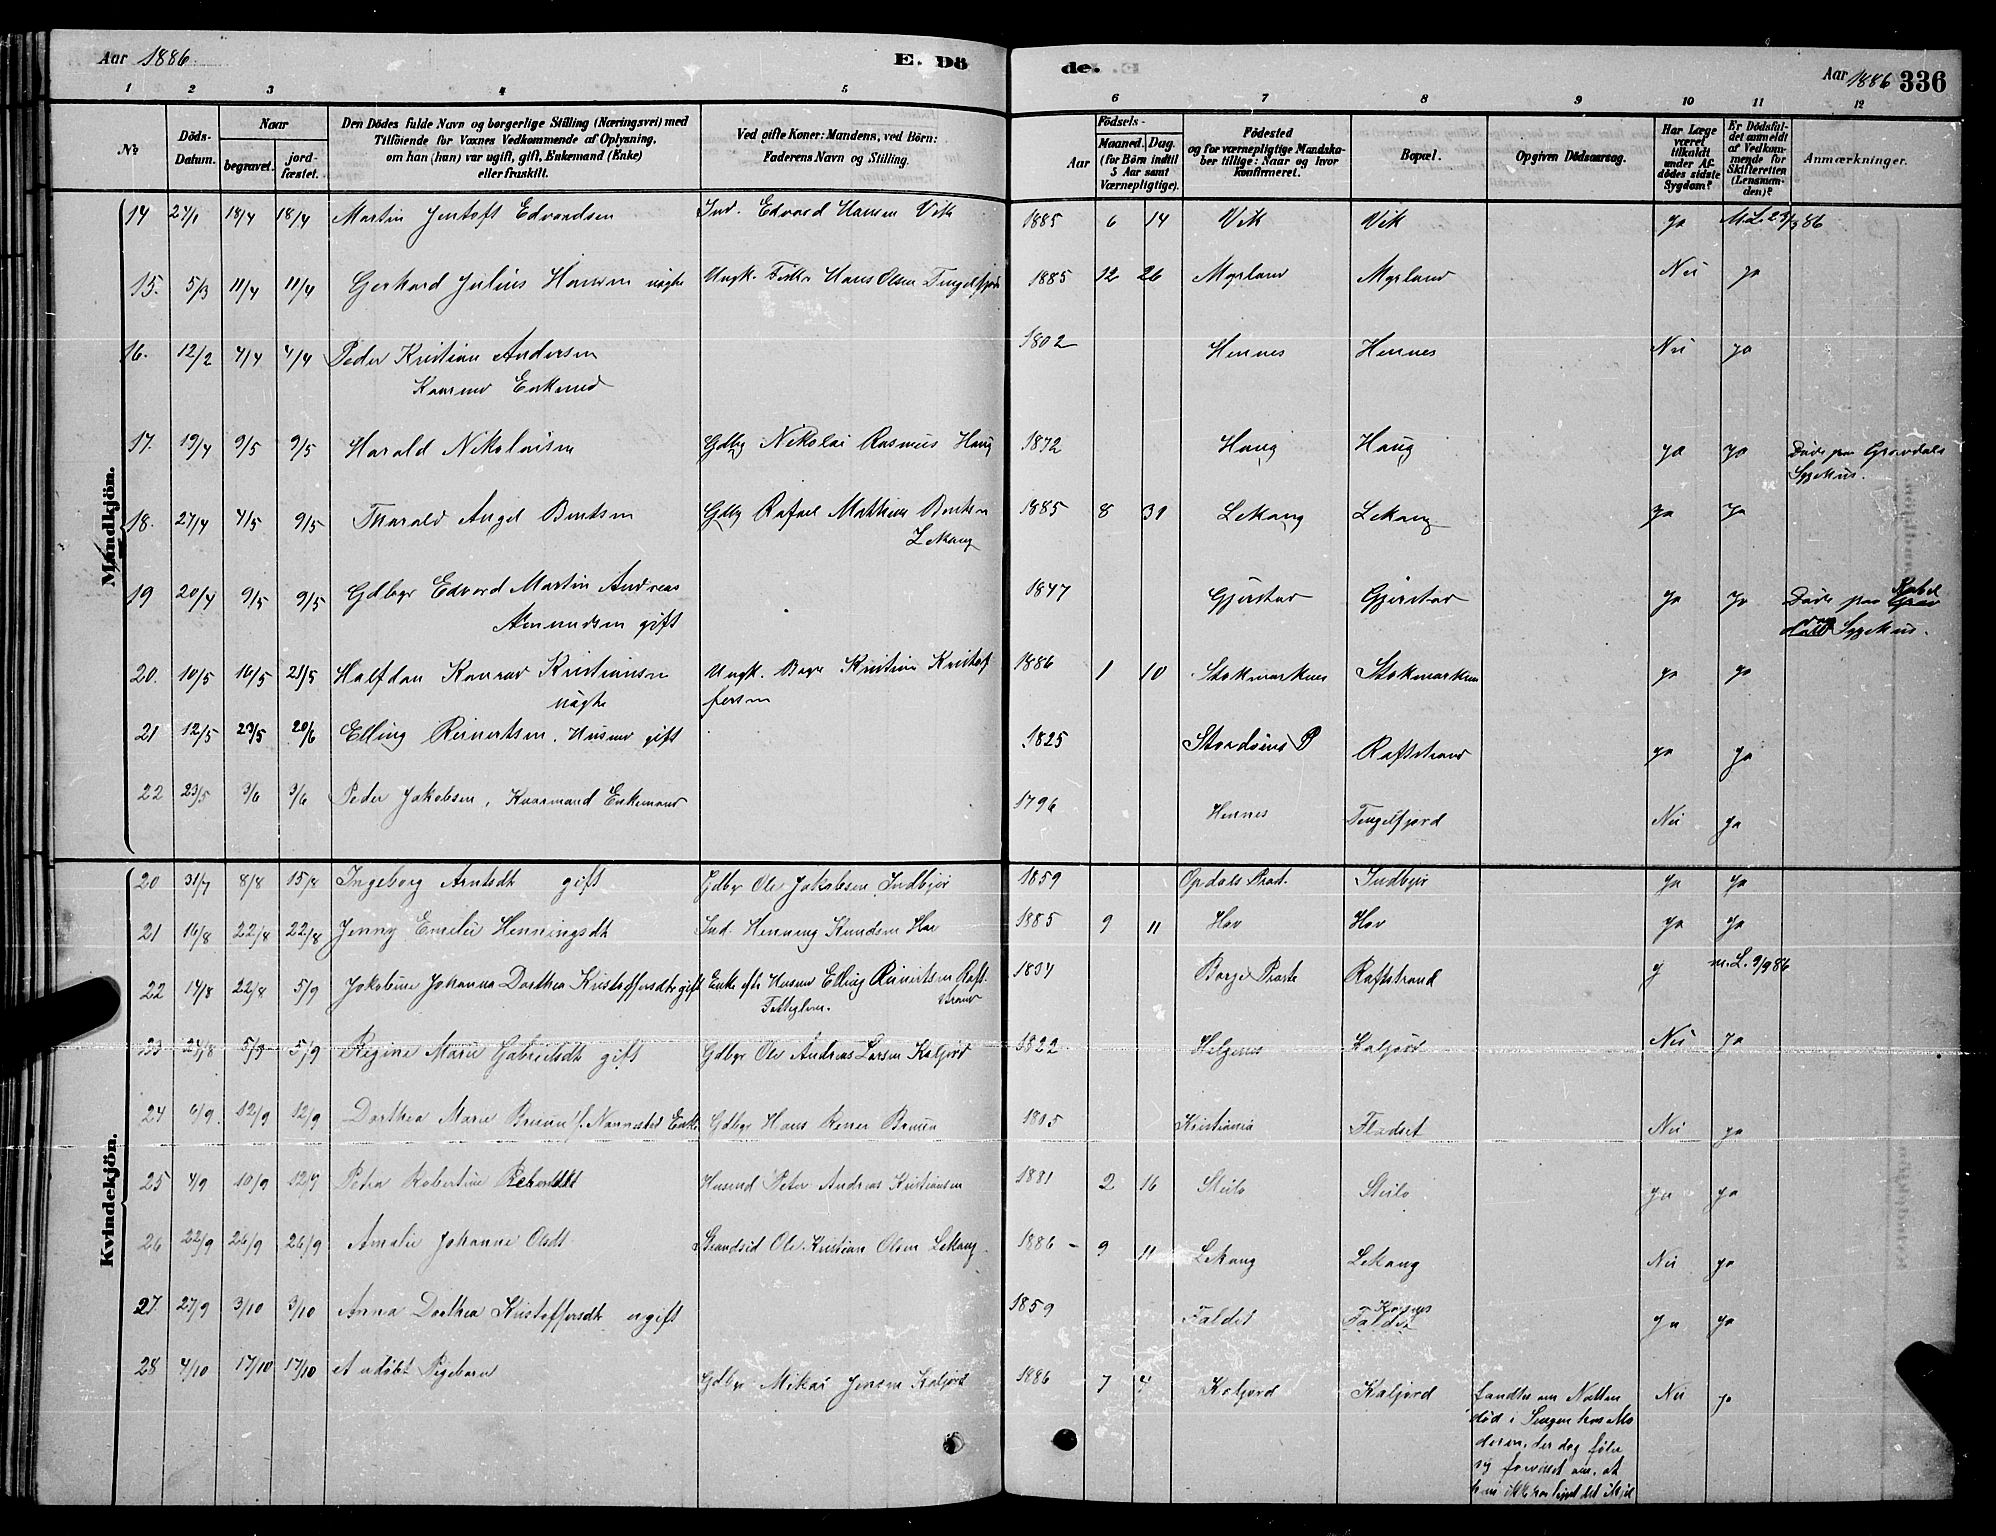 Aar 1886. E. Dö de. Aar 1886 336
1 2 3 4 5 6 7 8 9 10 11 12
No.
Döds-Datum.
Naar
begravet.
jord-fæstet.
Den Dödes fulde Navn og borgerlige Stilling (Næringsvei) med
Tilföiende for Voxnes Vedkommende af Oplysning,
om han (hun) var ugift, gift, Enkemand (Enke)
eller fraskilt.
Ved gifte Koner: Mandens, ved Börn:
Faderens Navn og Stilling.
Födsels-
Aar
Maaned. Dag.
(for Börn indtil
5 Aar samt
Værnepligtige).
Födested
og for værnepligtige Mandska-
ber tillige: Naar og hvor
konfirmeret.
Bopæl.
Opgiven Dödsaarsag.
Har Læge
været
tilkaldt
under Af-
dödes sidste
Sygdom?
Er Dödsfal-
det anmeldt
af Vedkom-
mende for
Skifteretten
(Lensman-
den)?
Anmærkninger.
Mandkjön.
14 24/1 18/4 18/4 Martin Jentoft Edvardsen Ind. Edvard Hansen Vik 1885 6 14 Vik Vik ja
15. 5/3 11/4 11/4 Gerhard Julius Hansen uægte Ungk. Hans Olsen Tengelfjord 1885 12 26 Myrland Myrland Nei ja
16. 12/2 4/4 4/4 Peder Kristian Andersen 1802 Hennes Hennes Nei ja
Kaarmd Enkemd
17. 19/4 9/5 9/5 Harald Nikolaisen Gdbg Nikolai Rasmus Haug 1872 Haug Haug ja ja Døde paa Gravdals
Sygehus.
18. 27/4 4/5 9/5 Tharald Angel Bentsen Gdbg Rafael Mathias Bentsen 1885 8 31 Lekang Lekang ja ja
Lekang
19 20/4 9/5 9/5 Gdbgr Edvard Martin Andreas 1847 Gjerstad Gjerstad ja ja Døde paa Kabel
Amundsen gift vaag Sygehus.
20. 10/5 16/5 23/5 Halfdan Konrad Kristiansen Ungk. Kristian Kristof 1886 1 10 Stokmarknes Stokmarknes ja ja
uægte fersen
21 12/5 23/5 20/6 Elling Reinertsen, Husmd gift 1825 Raftstrand ja ja
22 23/5 3/6 3/6 Peder Jakobsen, Kaarmand Enkemand 1796 Hennes Tengelfjord Nei ja
Kvindekjön.
20 31/7 8/8 15/8 Ingeborg Arntsdt gift Gdbgr Ole Jakobsen Indbjör 1859 Opdals Præst. Indbjör ja ja
21 16/8 22/8 22/8 Jenny Emelie Henningsdt Ind. Henning Knudsen Hov 1885 9 11 Hov Hov ja ja
22 14/8 22/8 5/9 Jakobine Johanna Dorthea Kristoffersdt gift Enke efter Husmd Elling Reinertsen Raft- 1834 Borge Præste Raftstrand j m.L. 9/9 86
Fattiglem. strand
23 24/8 5/9 5/9 Regine Marie Gabrielsdt gift Gdbgr Ole Andreas Larsen Kaljord 1822 Helgenes Kaljord Nei ja
24 6/9 12/9 12/9 Dorthea Marie Bruun f. Nannestad Enke Gdbgr Hans Bruun 1805 Kristiania Fladset Nei ja
25 4/9 10/9 12/9 Petra Robertine Husmd Peter Andreas Kristiansen 1881 2 16 Steilo Steilo ja ja
26 22/9 26/9 26/9 Amalie Johanne Olsdt Strandsid Ole Kristian Olsen Lekang 1886 - 9 11 Lekang Lekang Nei ja
27. 27/9 3/10 3/10 Anna Dorthea Kristoffersdt ugift 1859 Faldet Korsnes ja ja
Faldet
28 4/10 17/10 17/10 et udöbt Pigebarn Gdbgr Mikal Jensen Kaljord 1886 7 4 Kaljord Kaljord Nei ja
Fandtes om Natten
död i Sengen hos Mo
deren, der dog föler
sig forvisset om, at
hun ikke har ligget det ihjel